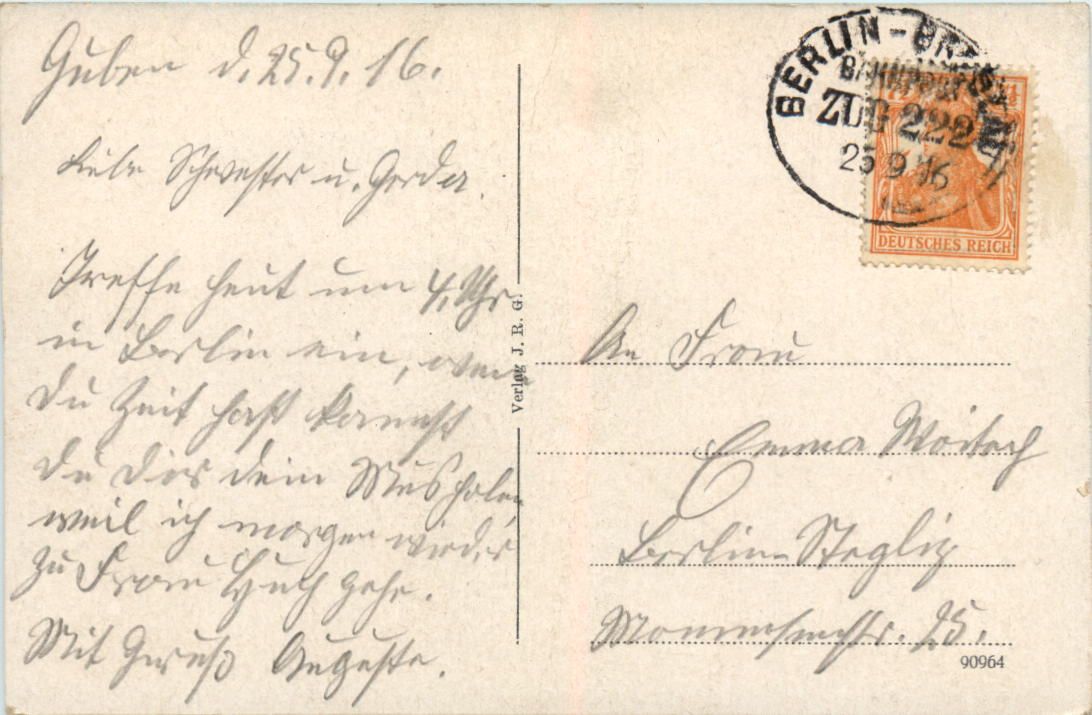 Guben d. 25.9.16.
Liebe Schwester u. Gerda.
Treffe heut um 4 Uhr
in Berlin ein, wenn
Du Zeit hast kannst
Du Dir dein Mus holen,
weil ich morgen wieder
zu Frau gehe.
Mit Gruß Auguste.
Verlag J. R. G.
BERLIN - BRESLAU
BAHNPOST
ZUG 222
25 9 16
DEUTSCHES REICH
An Frau
Emma
Berlin-Steglitz
25.
90964